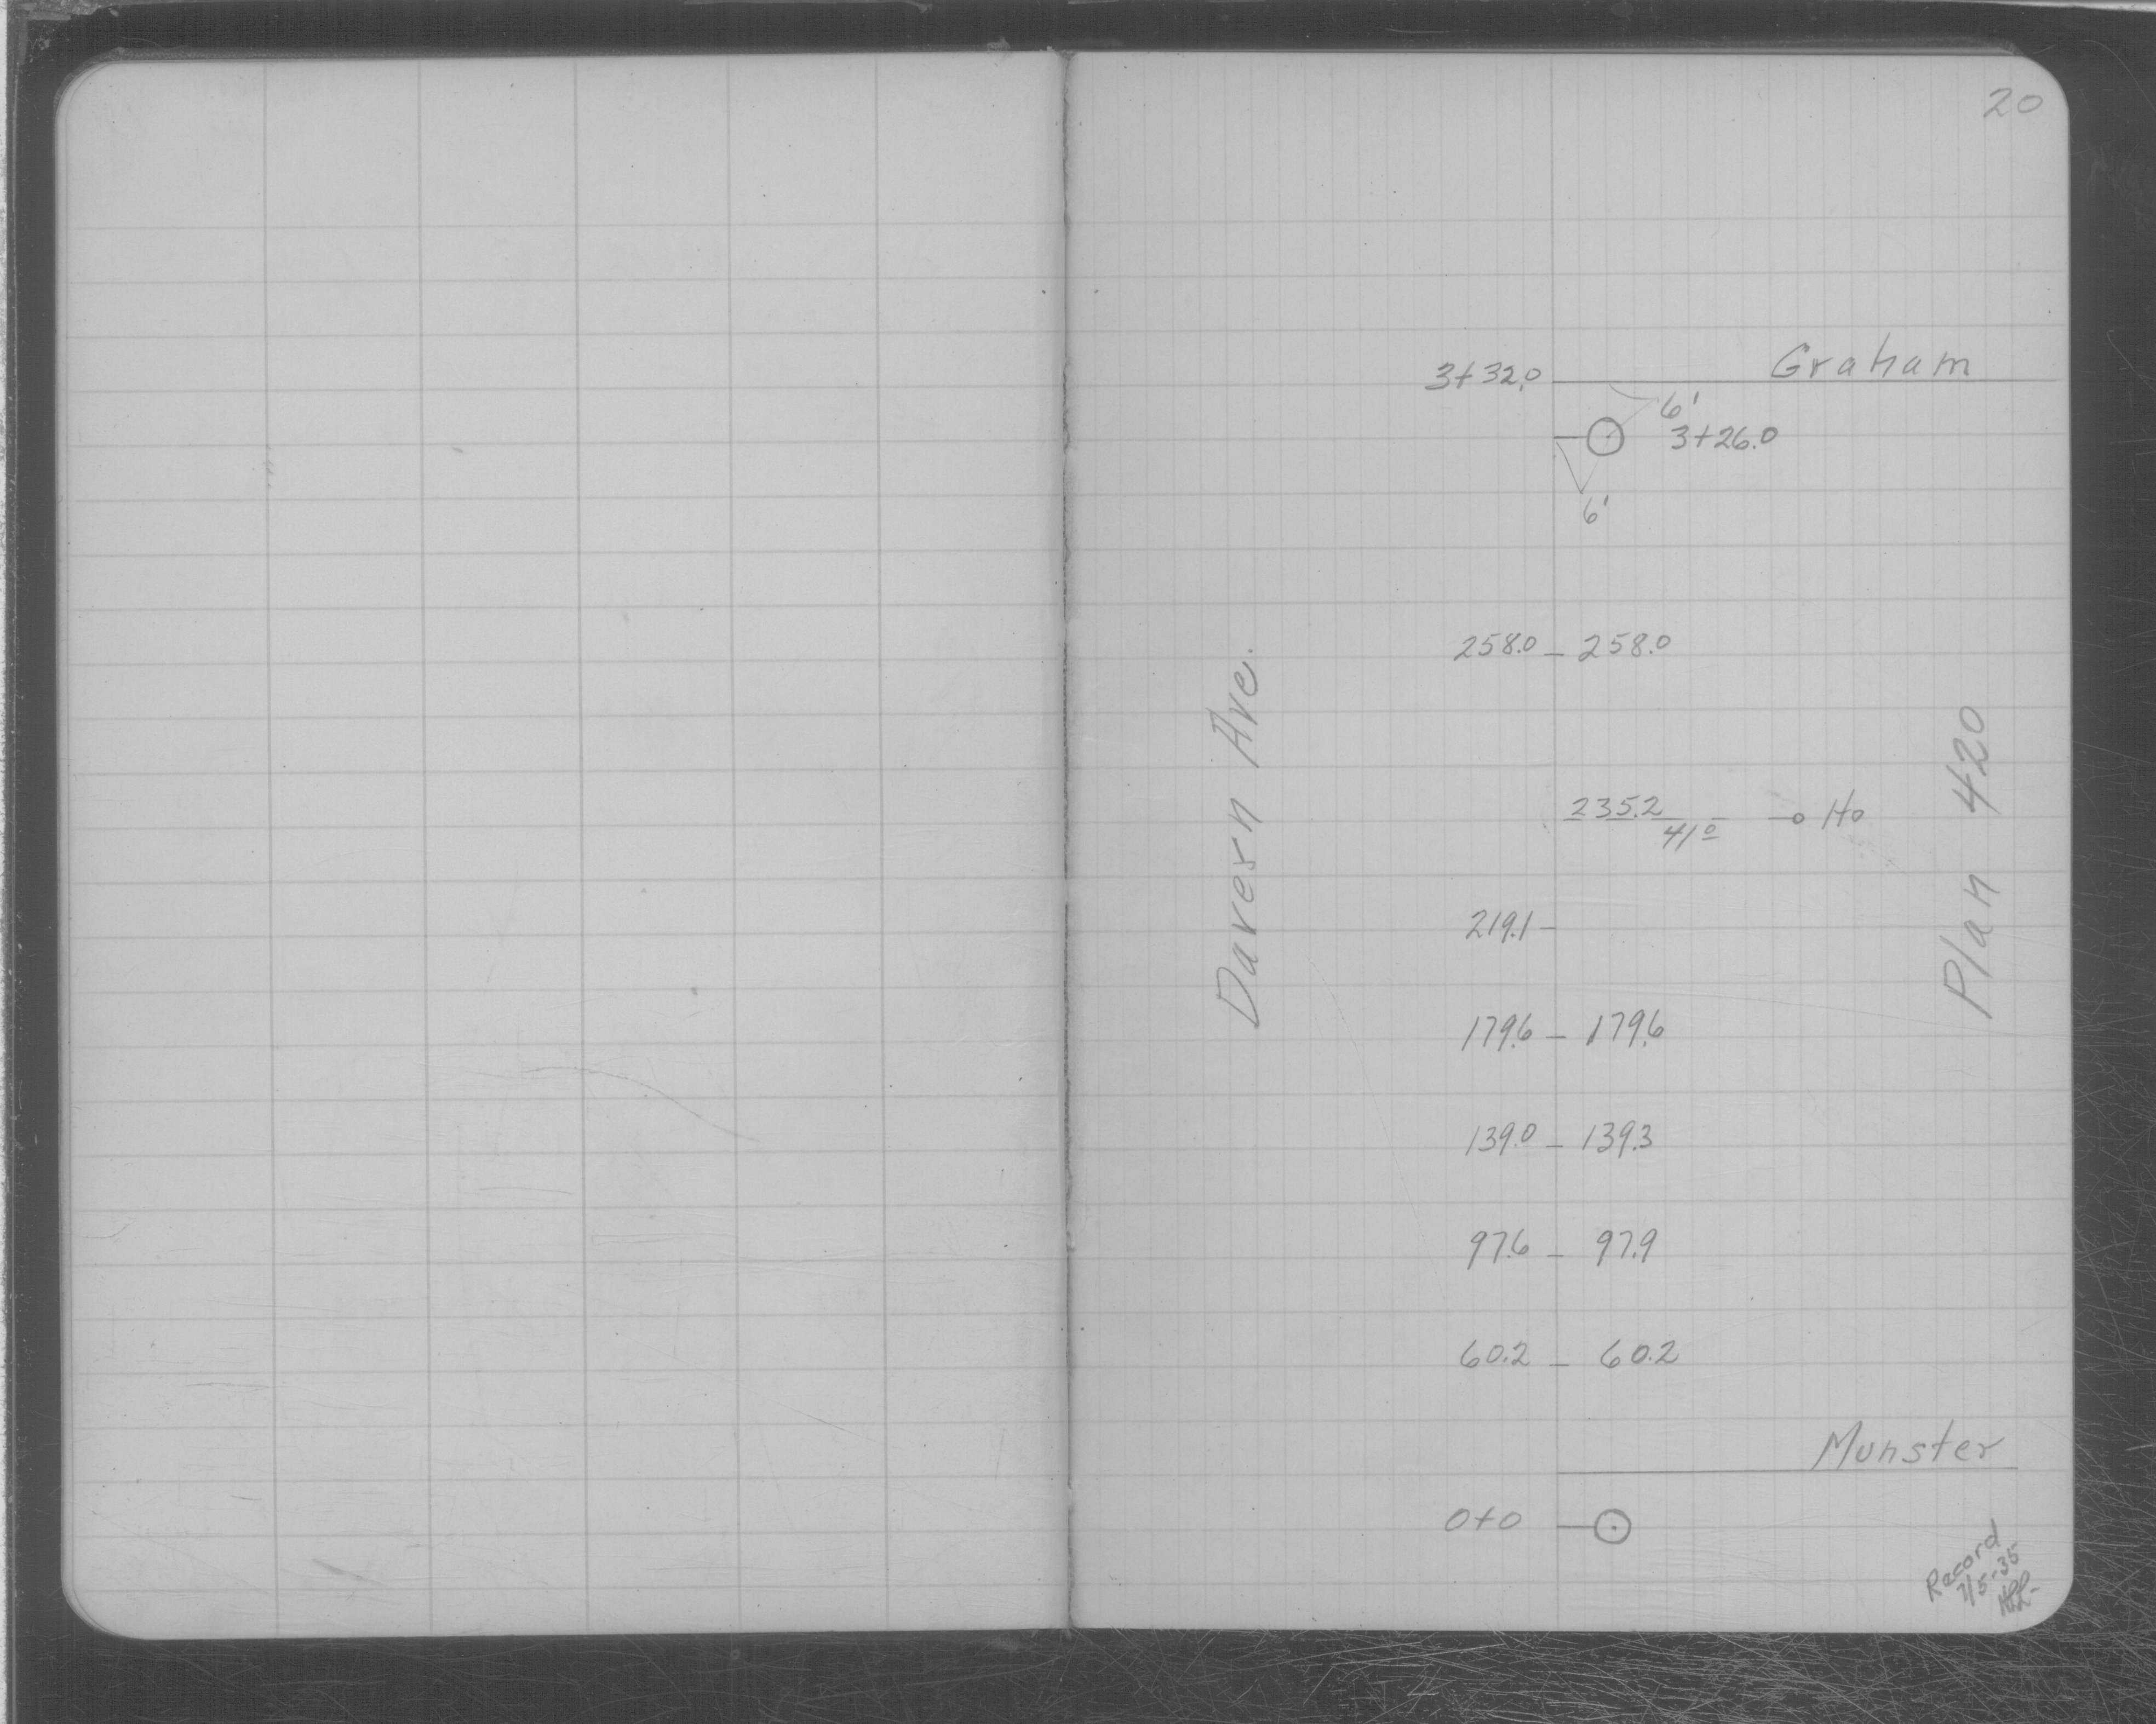 20
3+32.0 Graham
6'
3+26.0
6'
258.0 - 258.0
Davern Ave.
Plan 420
235.2 Ho
41º
219.1 -
179.6 - 179.6
139.0 - 139.3
97.6 - 97.9
60.2 - 60.2
Munster
0+0
Record
7/5-35